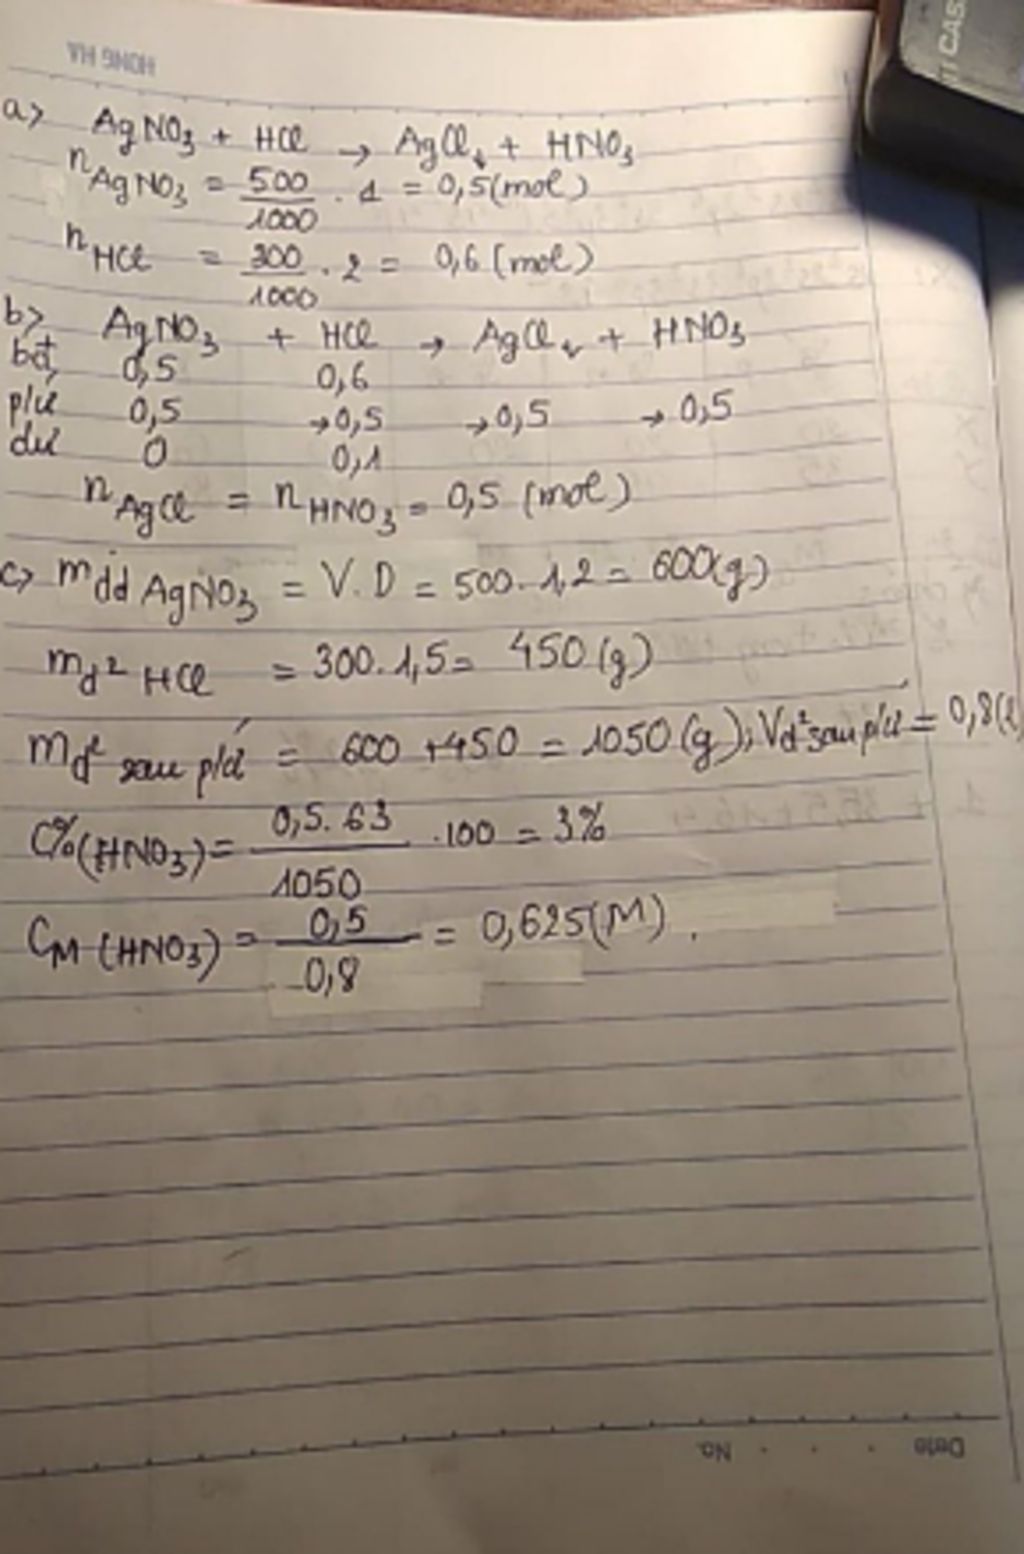 HONG HA
CAS
a) AgNO3 + HCl → AgCl↓ + HNO3
nAgNO3 = 500/1000 . 1 = 0,5(mol)
nHCl = 300/1000 . 2 = 0,6 (mol)
b) AgNO3 + HCl → AgCl↓ + HNO3
bđ 0,5 0,6
p/ứ 0,5 →0,5 →0,5 →0,5
dư 0 0,1
nAgCl = nHNO3 = 0,5 (mol)
c) mdd AgNO3 = V.D = 500.1,2 = 600(g)
md² HCl = 300.1,5 = 450 (g)
md² sau p/ứ = 600 +450 = 1050 (g); Vd² sau p/ứ = 0,8(l
C%(HNO3) = 0,5.63/1050 .100 = 3%
CM (HNO3) = 0,5/0,8 = 0,625(M).
No. Date